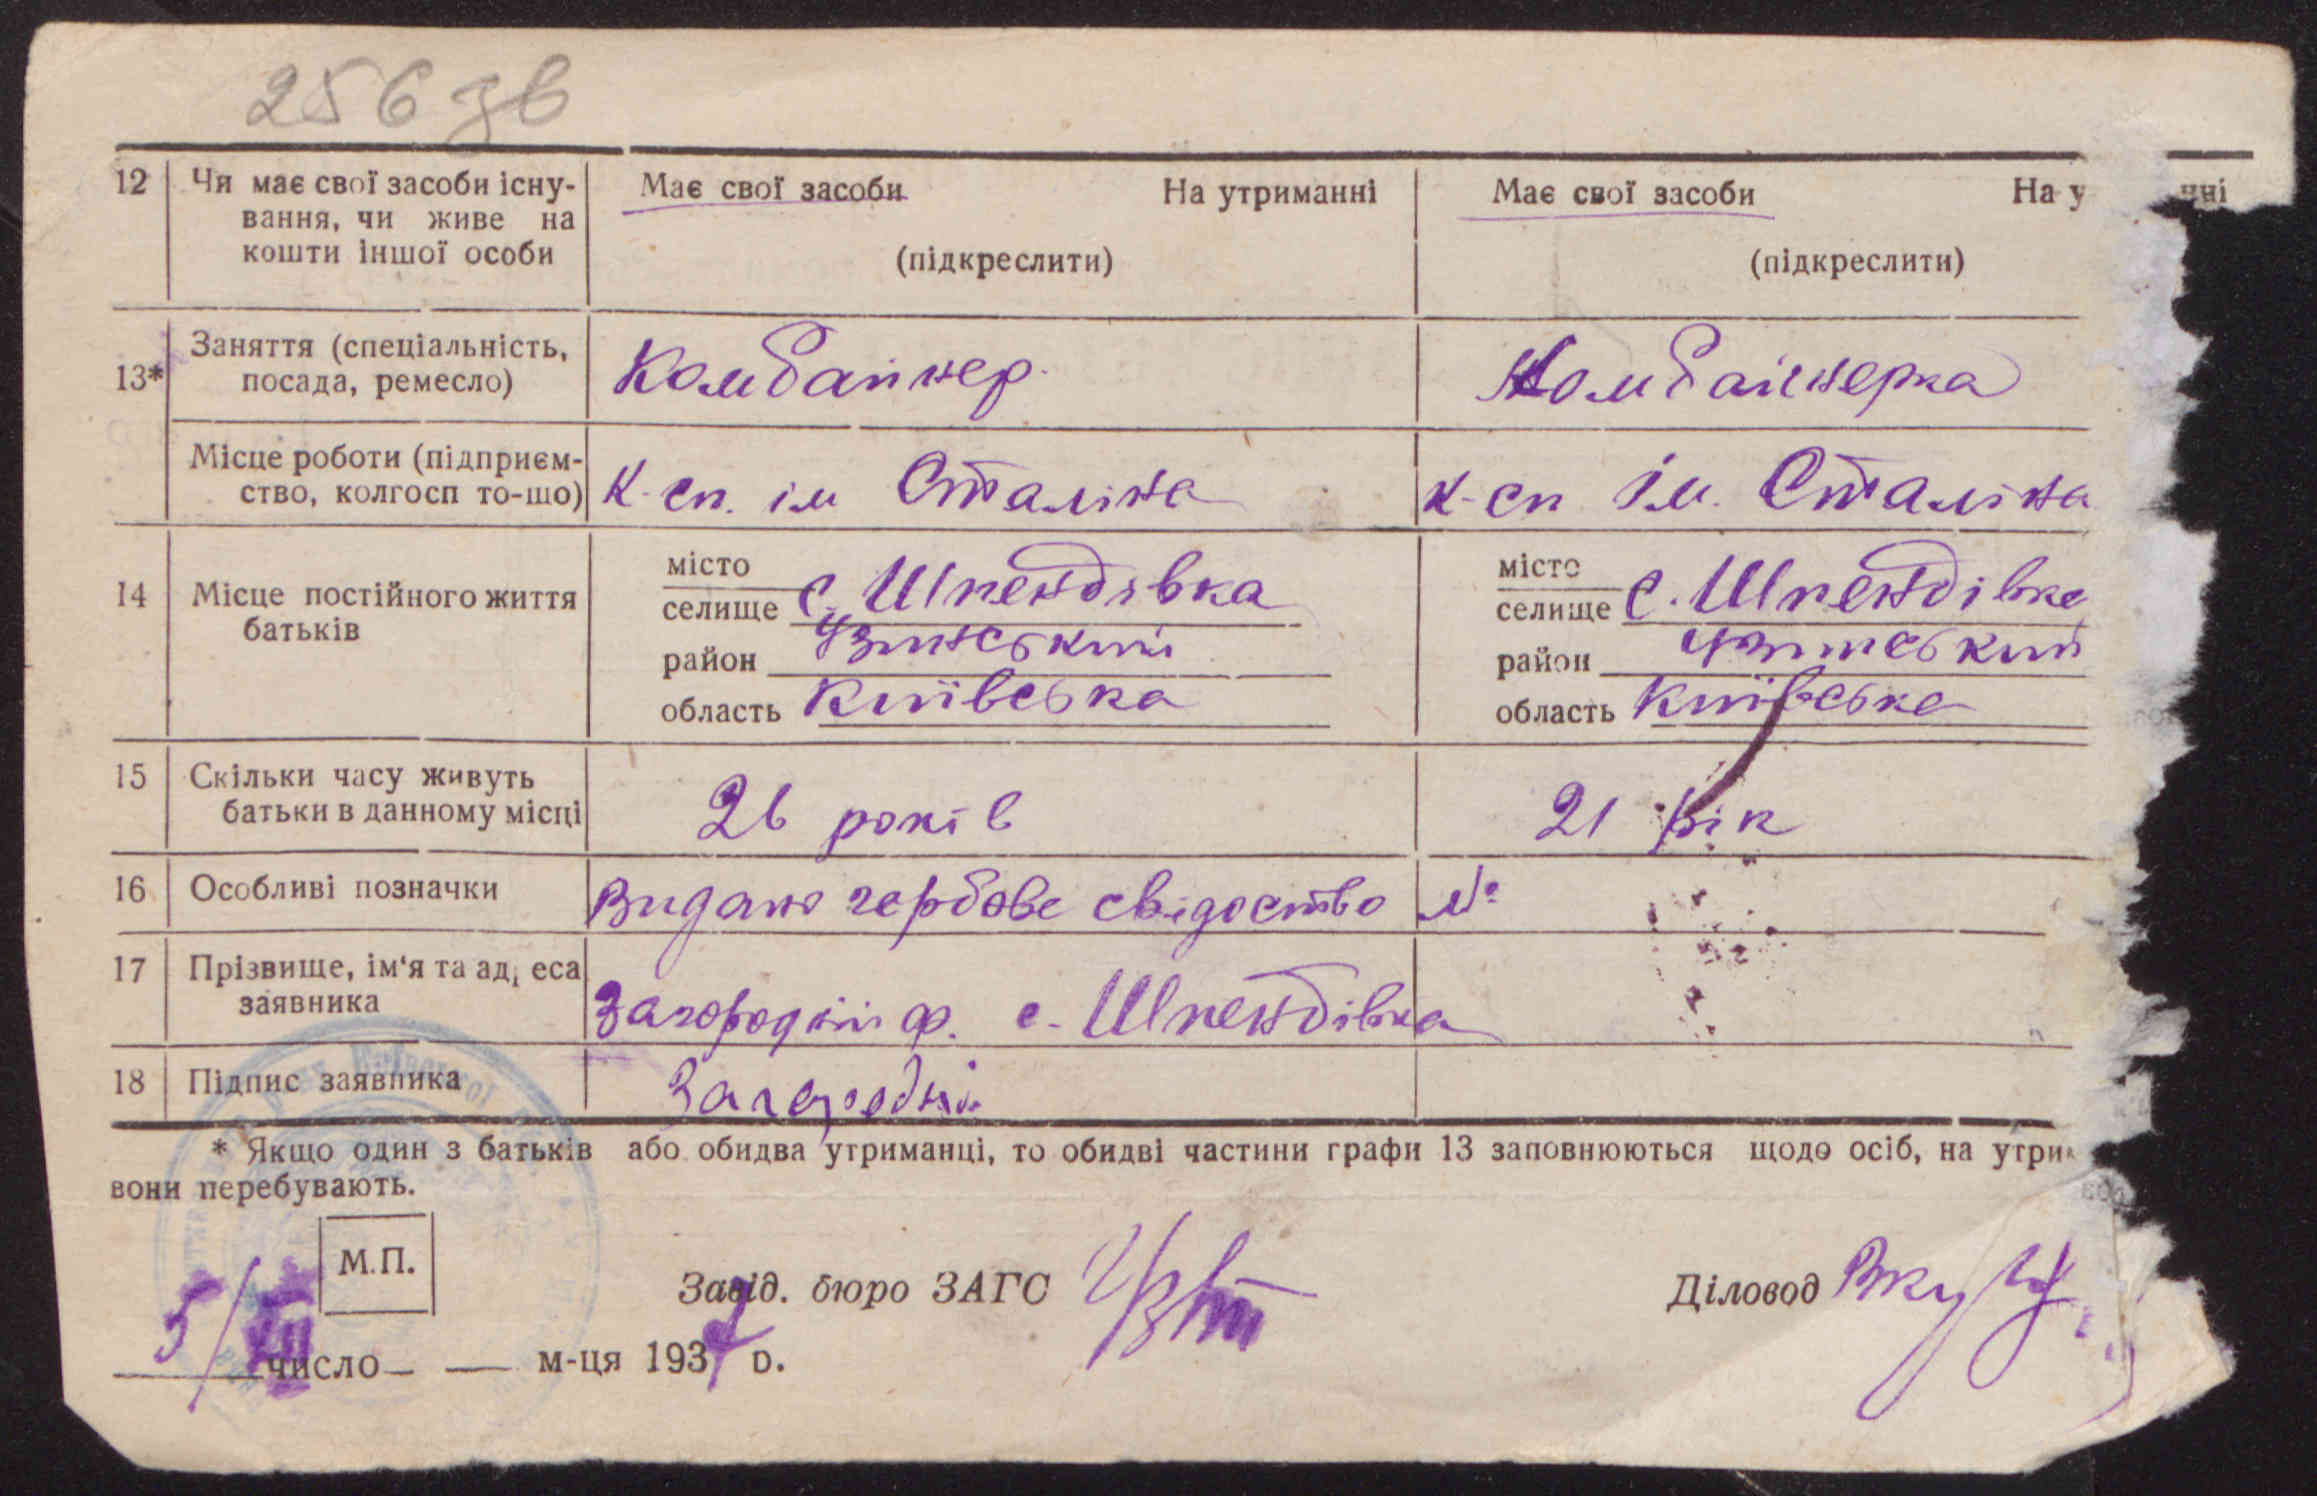 256 зв
12 Чи має свої засоби існу- Має свої засоби На утриманні Має свої засоби На у нні
вання, чи живе на
кошти іншої особи (підкреслити) (підкреслити)
13* Заняття (спеціальність, Комбайнер. Комбайнерка
посада, ремесло)
Місце роботи (підприєм- К-сп. ім Сталіна к-сп ім. Сталіна
ство, колгосп то-що)
14 Місце постійного життя батьків
місто місто
селище с. Шпендівка селище с. Шпендівка
район Узинський район Узинський
область Київська область Київська
15 Скільки часу живуть 26 років 21 рік
батьки в данному місці
16 Особливі позначки Видано гербове свідоство №
17 Прізвище, ім'я та ад еса Загородній ф. с. Шпендівка
заявника
18 Підпис заявника Загородній
* Якщо один з батьків або обидва утриманці, то обидві частини графи 13 заповнюються щодо осіб, на утри
вони перебувають.
М.П.
Завід. бюро ЗАГС Діловод
5/XII число м-ця 1937 р.